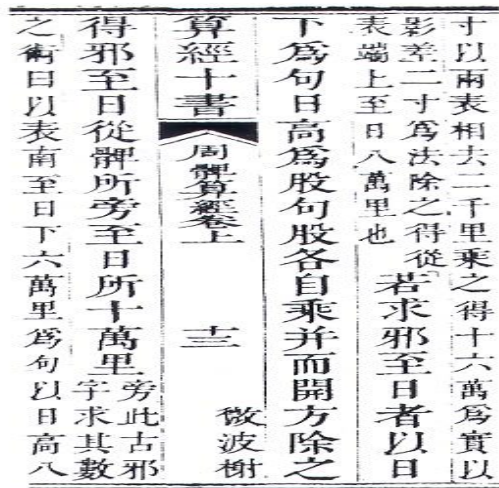 寸以兩表相去二千里乘之得十六萬爲實以
影差二寸爲法除之得從
表端上至日八萬里也
若求邪至日者以日
下爲句日高爲股句股各自乘并而開方除之
算經十書
周髀算經卷上
十三
微波榭
得邪至日從髀所旁至日所十萬里
旁此古邪
字求其數
之術曰以表南至日下六萬里爲句以日高八